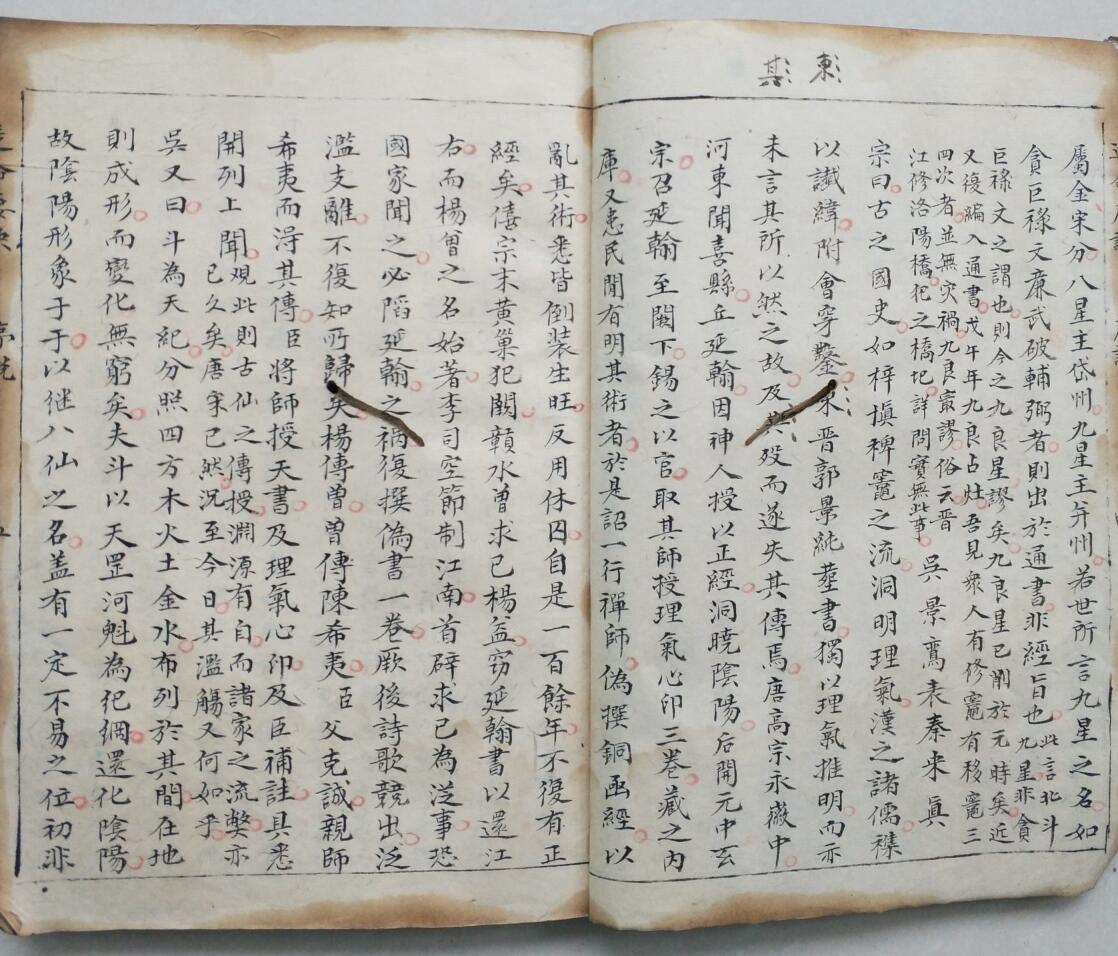 東
其
屬金宋分八星主岱州九星主弁州若世所言九星之名如
貪巨祿文廉武破輔弼者則出於通書非經旨也此言北斗九星非貪
巨祿文之謂也則今之九良星謬矣九良星已刪於元時矣近
又復編入通書戊午年九良占灶吾見衆人有修竈有移竈三
四次者並無灾禍九良寂謬俗云晋
江修洛陽橋犯之橋圯詳問實無此事吳景鸞表奏来真
宗曰古之國史如梓槙稗竈之流洞明理氣漢之諸儒襍
以讖緯附會穿鑿東晋郭景純塟書獨以理氣推明而亦
未言其所以然之故及其殁而遂失其傳焉唐高宗永徽中
河東聞喜縣丘延翰因神人授以正經洞曉陰陽后開元中玄
宗召延翰至闕下錫之以官取其師授理氣心印三卷藏之內
庫又患民間有明其術者於是詔一行禪師偽撰銅函經以
亂其術悉皆倒装生旺反用休囚自是一百餘年不復有正
經矣僖宗末黄巢犯闕贛水曾求已楊益窃延翰書以還江
右而楊曾之名始著李司空節制江南首辟求已為泛事恐
國家聞之必蹈延翰之禍復撰偽書一卷厥後詩歌競出泛
濫支離不復知所歸矣楊傳曾曾傳陳希夷臣父克誠親師
希夷而淂其傳臣將師授天書及理氣心印及臣補註具悉
開列上聞觀此則古仙之傳授淵源有自而諸家之流獘亦
已久矣唐宋已然况至今日其濫觴又何如乎
吳又曰斗為天紀分照四方木火土金水布列於其間在地
則成形而變化無窮矣夫斗以天罡河魁為紀綱還化陰陽
故陰陽形象于于以继八仙之名盖有一定不易之位初非